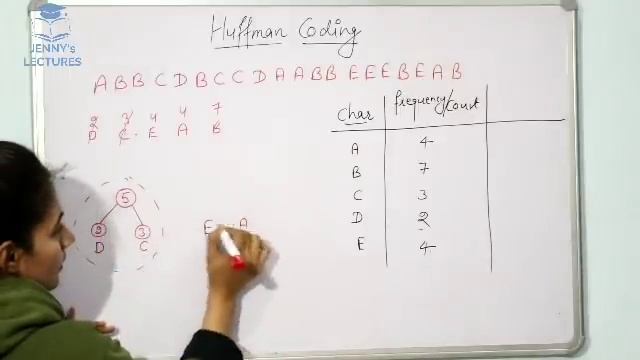 JENNY's
LECTURES
Huffman Coding
A B B C D B C C D A A B B E E E B E A B
2 3 4 4 7
D C E A B
5
2 3
D C
E A
char frequency/count
A 4
B 7
C 3
D 2
E 4